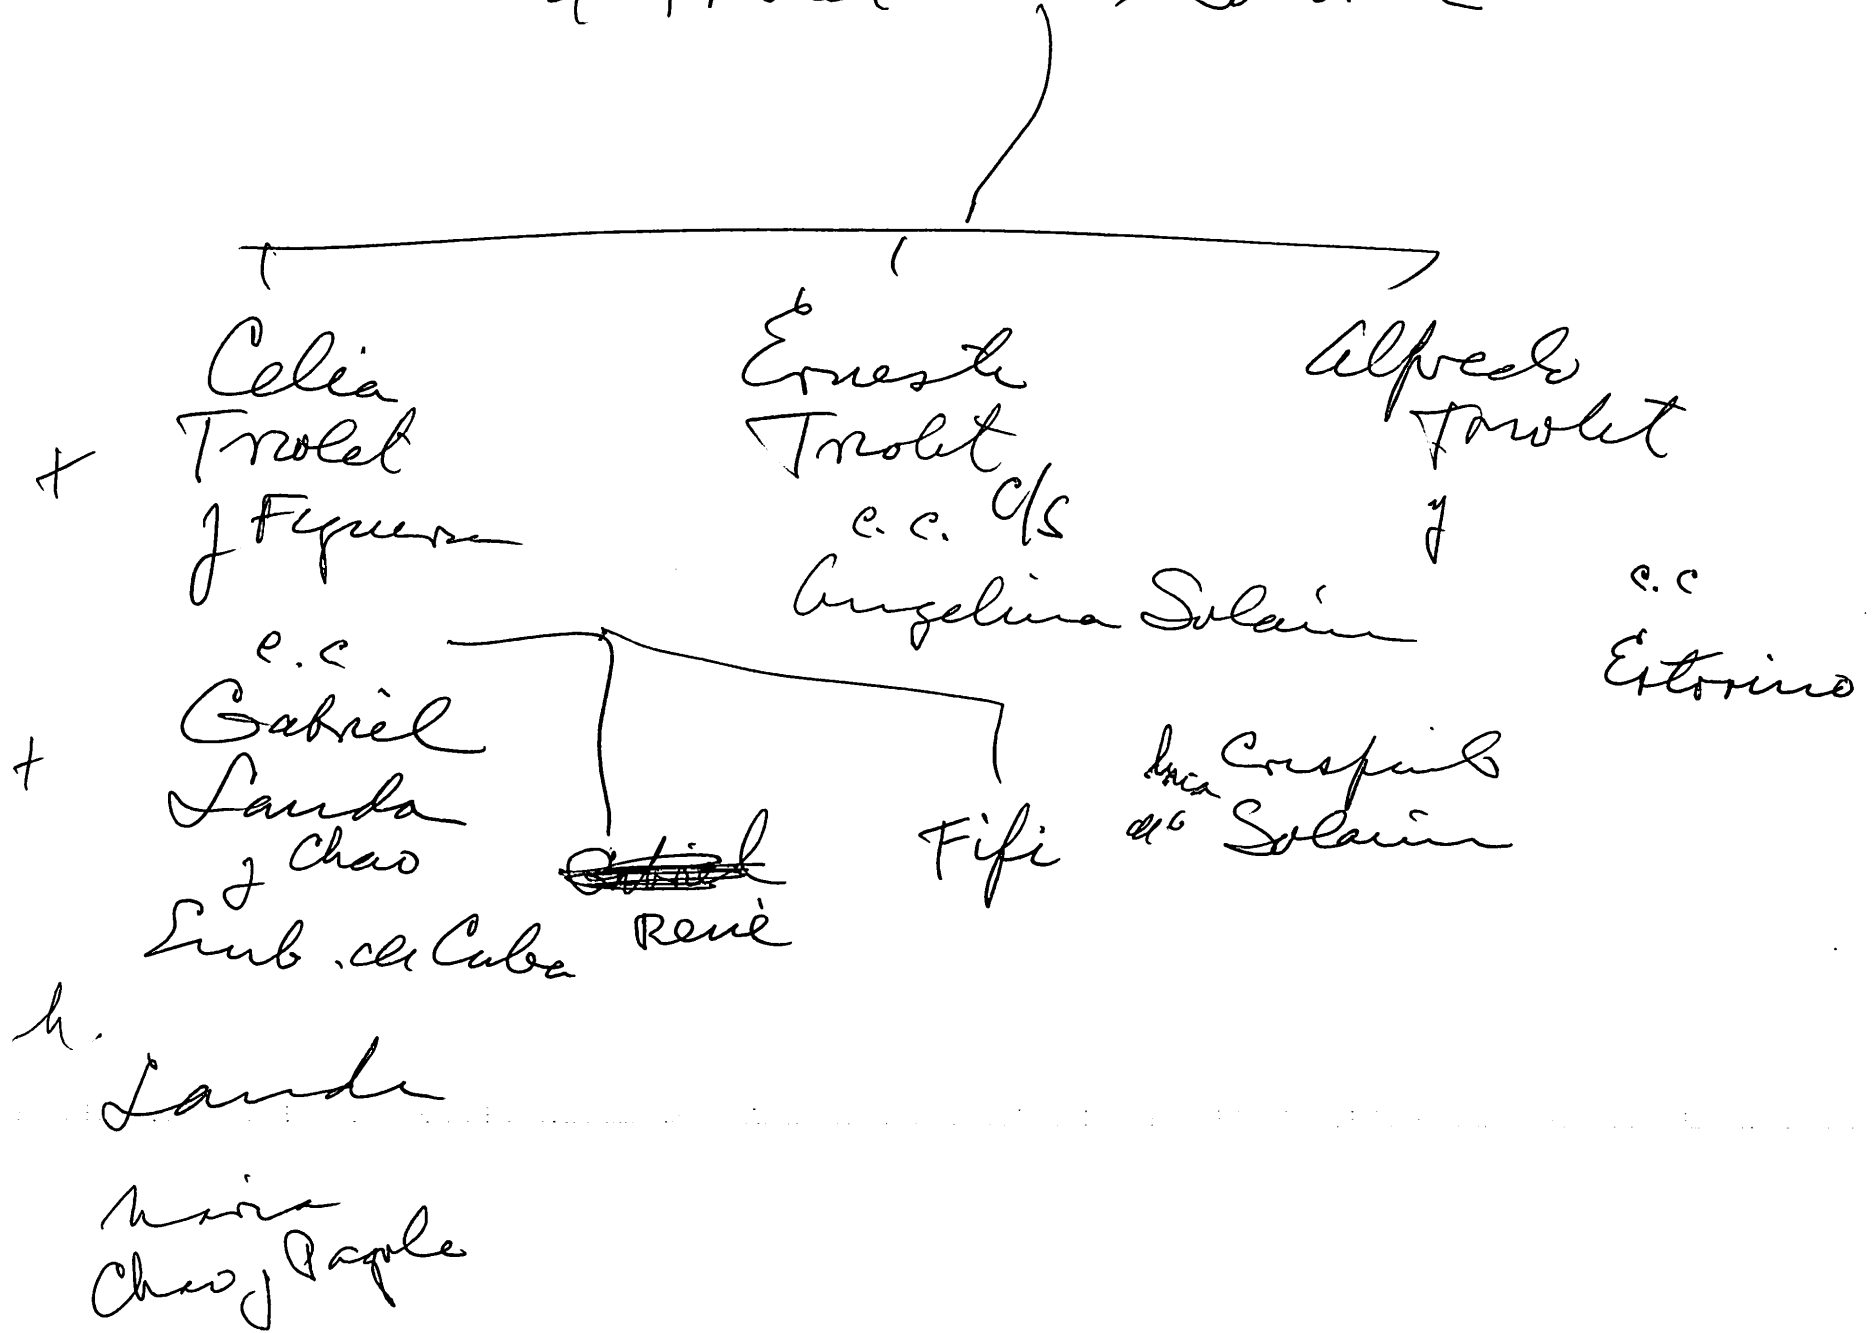 Celia
Triolet
y Figueroa
e.c
Gabriel
Landa
y Chao
Emb. de Cuba
h.
Landa
Maria
Chao y Pagola
René
Fifi
Ernesto
Triolet
e.c. c/s
Angelina Solaun
hna de
Crispulo
Solaun
Alfredo
Triolet
y
e.c
Estorino